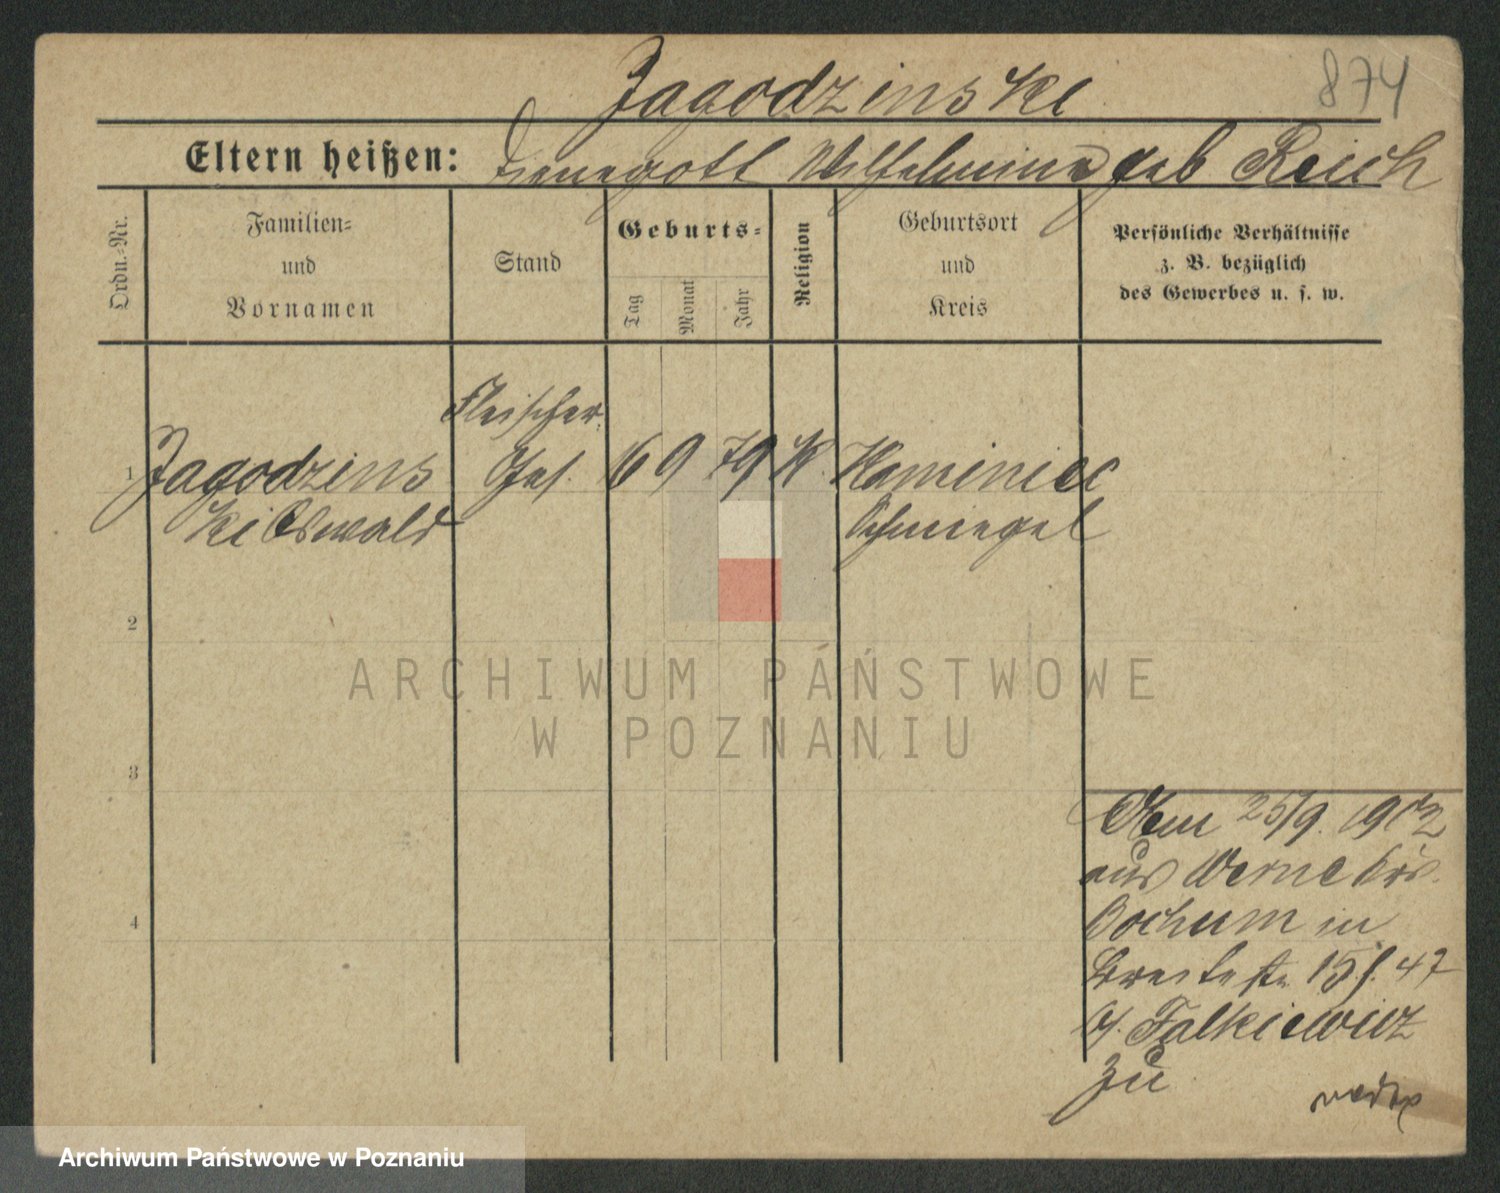 874
Jagodzinski
Eltern heißen: Traugott Wilhelmine geb Reich
Ordn.-Nr.
Familien-
und
Vornamen
Stand
Geburts-
Tag
Monat
Jahr
Religion
Geburtsort
und
Kreis
Persönliche Verhältnisse
z. B. bezüglich
des Gewerbes u. s. w.
Fleischer
1 Jagodzins Ges. 16 9 79 K. Kaminiec
ki Oswald Schmiegel
2
3
4
ARCHIWUM PAŃSTWOWE
W POZNANIU
25/9. 1902
aus Werne Krs.
Bochum in
Breitestr. 15
b/. Falkiewicz
zu
Archiwum Państwowe w Poznaniu